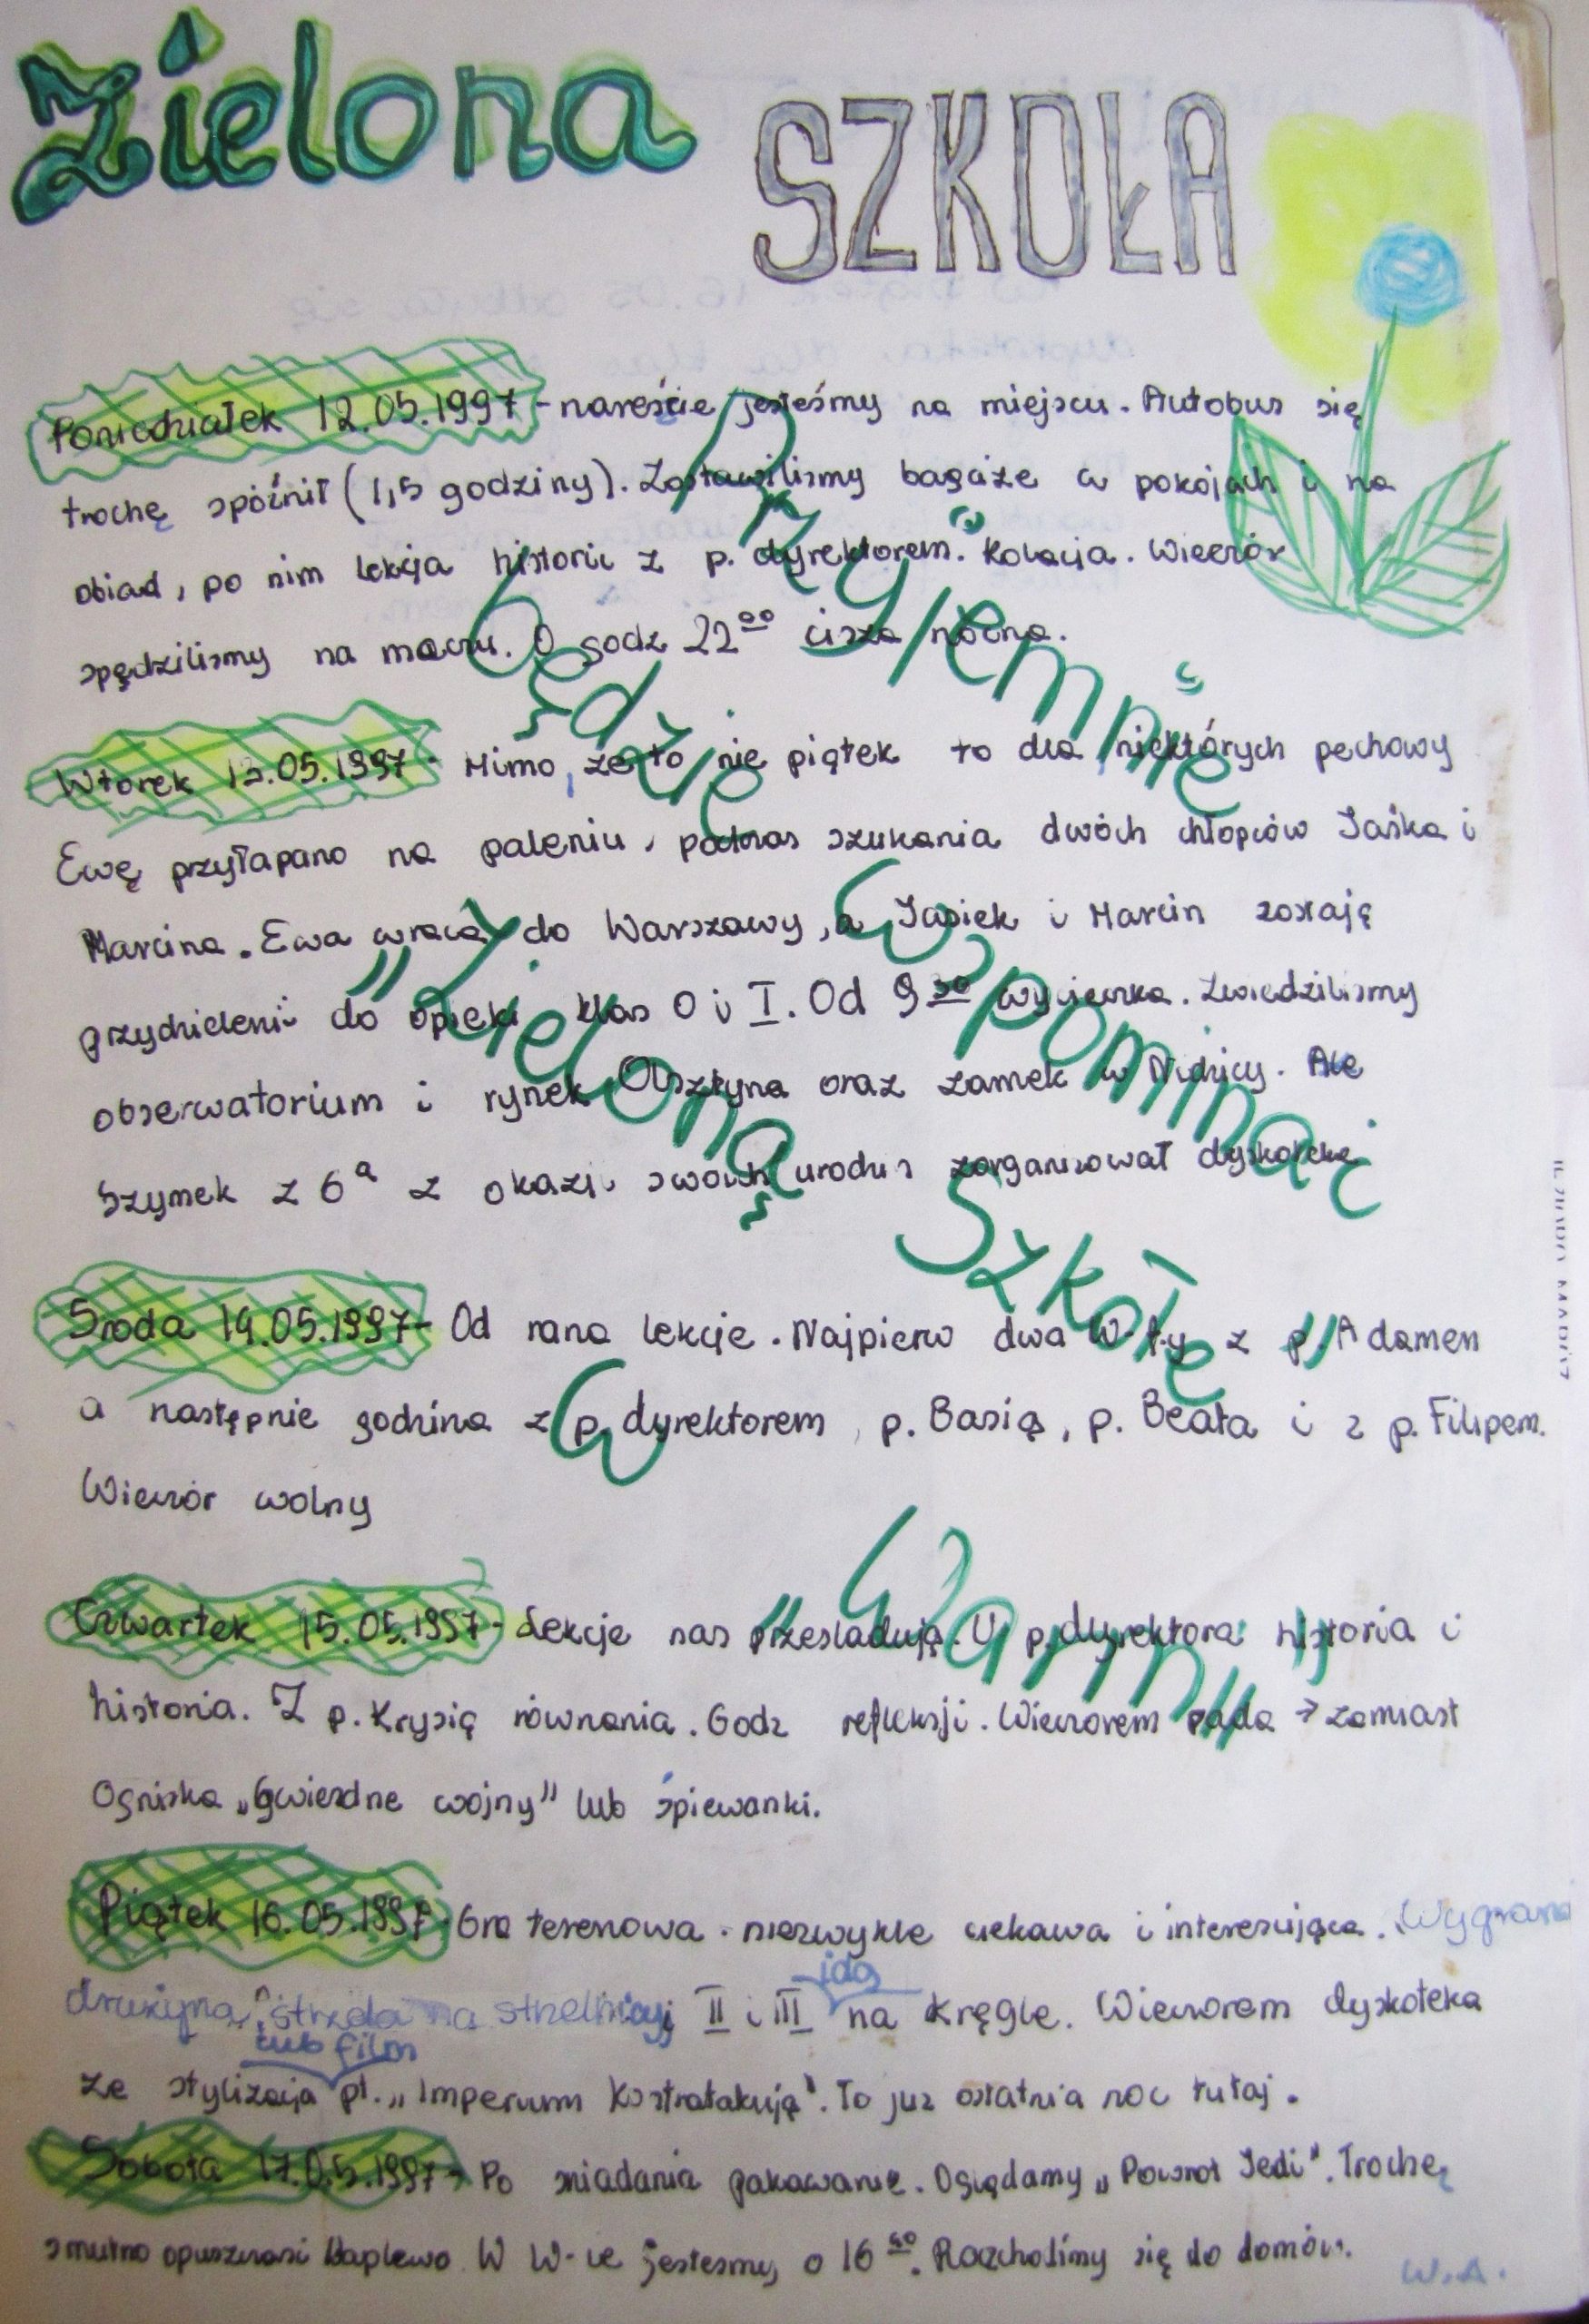 Zielona SZKOŁA
Poniedziałek 12.05.1997 - nareście jesteśmy na miejscu. Autobus się
trochę spóźnił (1,5 godziny). Zostawiliśmy bagaże w pokojach i na
obiad, po nim lekcja historii z p. dyrektorem. Kolacja. Wieczór
spędziliśmy na meczu. O godz 22⁰⁰ cisza nocna.
Wtorek 13.05.1997 - Mimo, że to nie piątek to dla niektórych pechowy
Ewę przyłapano na paleniu, podczas szukania dwóch chłopców Jaśka i
Marcina. Ewa wraca do Warszawy, a Jasiek i Marcin zostają
przydzieleni do opieki klas 0 i I. Od 9³⁰ wycieczka. Zwiedziliśmy
obserwatorium i rynek Olsztyna oraz zamek w Nidzicy. Ale
Szymek z 6ᵃ z okazji swoich urodzin zorganizował dyskotekę
Środa 14.05.1997 - Od rana lekcje. Najpierw dwa W-f-y z p. Adamem
a następnie godzina z p. dyrektorem, p. Basią, p. Beatą i z p. Filipem.
Wieczór wolny
Czwartek 15.05.1997 - Lekcje nas prześladują. U p. dyrektora historia i
historia. Z p. Krysią równania. Godz refleksji. Wieczorem pada → zamiast
Ogniska „Gwiezdne wojny" lub śpiewanki.
Piątek 16.05.1997 - Gra terenowa - niezwykle ciekawa i interesująca. Wygrana
drużyna strzela na strzelnicy, II i III idą na kręgle. Wieczorem dyskoteka
lub film
ze stylizacja pt. „Imperium Kostratakują". To już ostatnia noc tutaj.
Sobota 17.05.1997 - Po śniadania pakowanie. Oglądamy „Powrót Jedi". Trochę
smutno opuszczasi Waplewo. W W-ie jesteśmy o 16 . Rozchodimy się do domów.
W.A.
Będzie
Przyjemnie
Wspominać
„Zieloną
Szkołę"
W
„Wapnie"